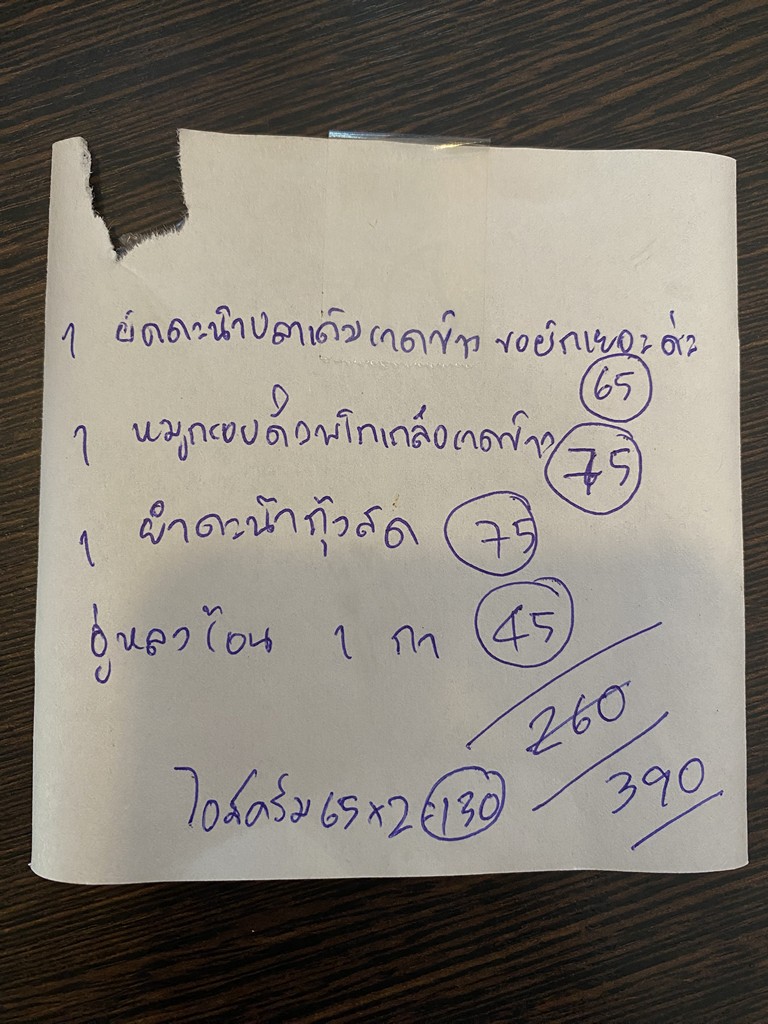 1 ผัดคะน้าปลาเค็มราดข้าว ขอผักเยอะค่ะ
65
1 หมูกรอบคั่วพริกเกลือราดข้าว 75
1 ยำคะน้ากุ้งสด 75
อู่หลงร้อน 1 กา 45
260
ไอศครีม 65 x 2 = 130 390